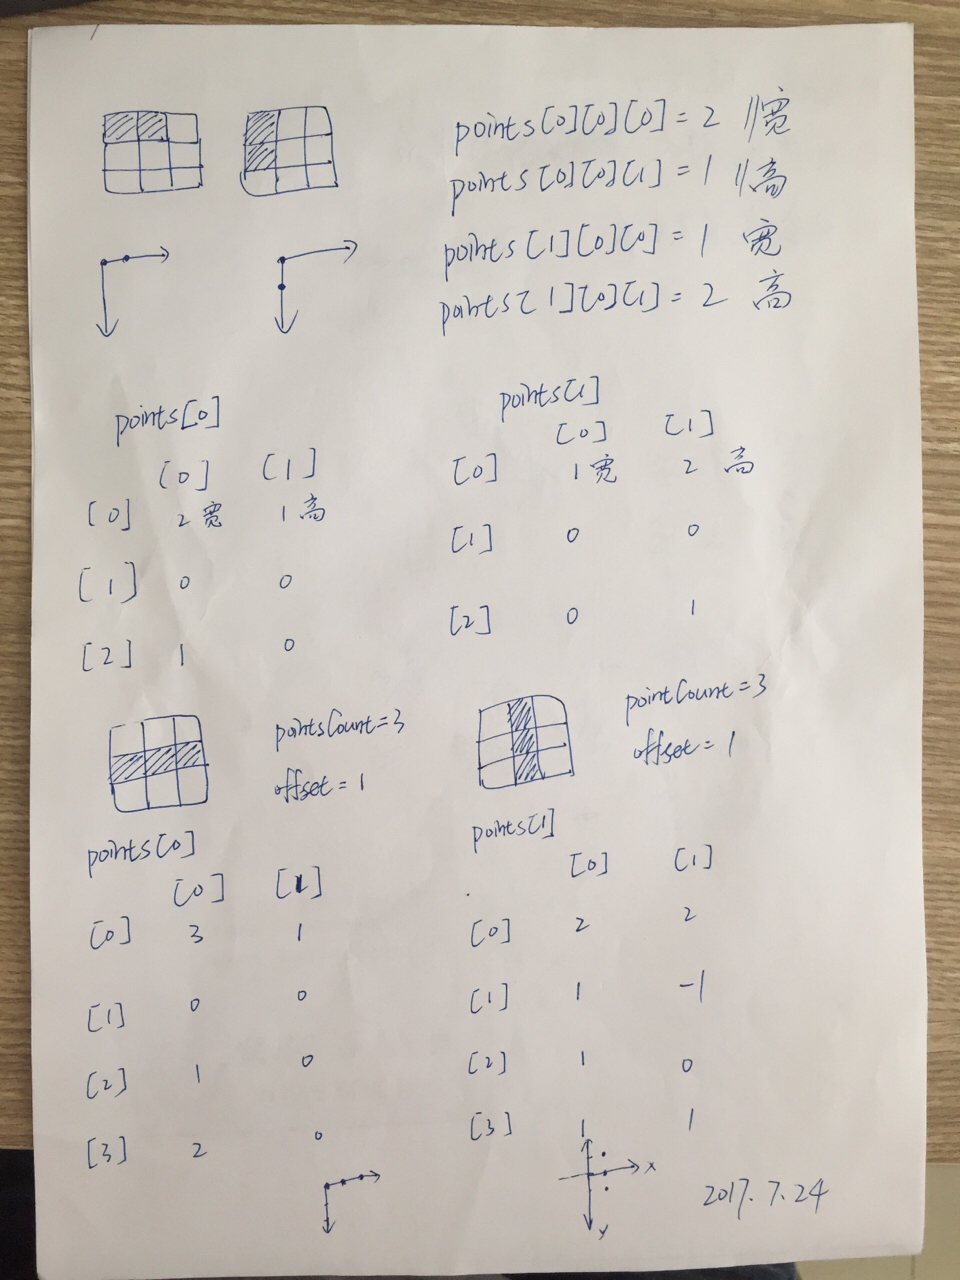 points[0][0][0] = 2 //宽
points[0][0][1] = 1 //高
points[1][0][0] = 1 宽
points[1][0][1] = 2 高
points[0]
[0] [1]
[0] 2宽 1高
[1] 0 0
[2] 1 0
points[1]
[0] [1]
[0] 1宽 2 高
[1] 0 0
[2] 0 1
pointsCount=3
offset = 1
points[0]
[0] [1]
[0] 3 1
[1] 0 0
[2] 1 0
[3] 2 0
pointCount=3
offset= 1
points[1]
[0] [1]
[0] 2 2
[1] 1 -1
[2] 1 0
[3] 1 1
x
y
2017.7.24